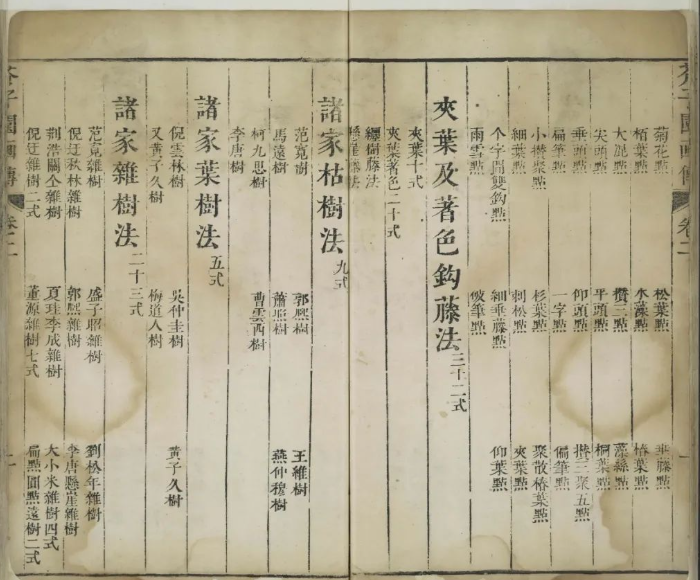 芥子園画傳 卷二 一
菊花點 松葉點 垂藤點
栢葉點 水藻點 椿葉點
大混點 攢三點 藻絲點
尖頭點 平頭點 桐葉點
垂頭點 仰頭點 攢三聚五點
扁筆點 一字點 偏筆點
小攢聚點 杉葉點 聚散椿葉點
細葉點 刺松點 夾葉點
个字間雙鈎點 細垂藤點 仰葉點
雨雪點 破筆點
夾葉及著色鈎藤法三十二式
夾葉十式
夾葉著色二十式
纏樹藤法
懸崖藤法
諸家枯樹法九式
范寬樹 郭熙樹 王維樹
馬遠樹 蕭照樹 燕仲穆樹
柯九思樹 曹雲西樹
李唐樹
諸家葉樹法五式
倪雲林樹 吳仲圭樹 黃子久樹
又黃子久樹 梅道人樹
諸家雜樹法二十三式
范寬雜樹 盛子昭雜樹 劉松年雜樹
倪迂秋林雜樹 郭熙雜樹 李唐懸崖雜樹
荊浩關仝雜樹 夏珪李成雜樹 大小米雜樹四式
倪迂雜樹二式 董源雜樹七式 扁點圓點遠樹二式
芥子園画傳 卷二 一